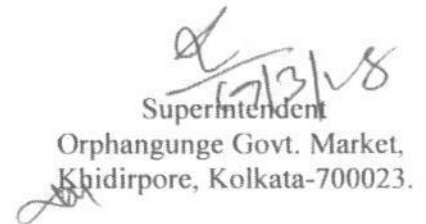 Superintendent
Orphangunge Govt. Market,
Khidirpore, Kolkata-700023.